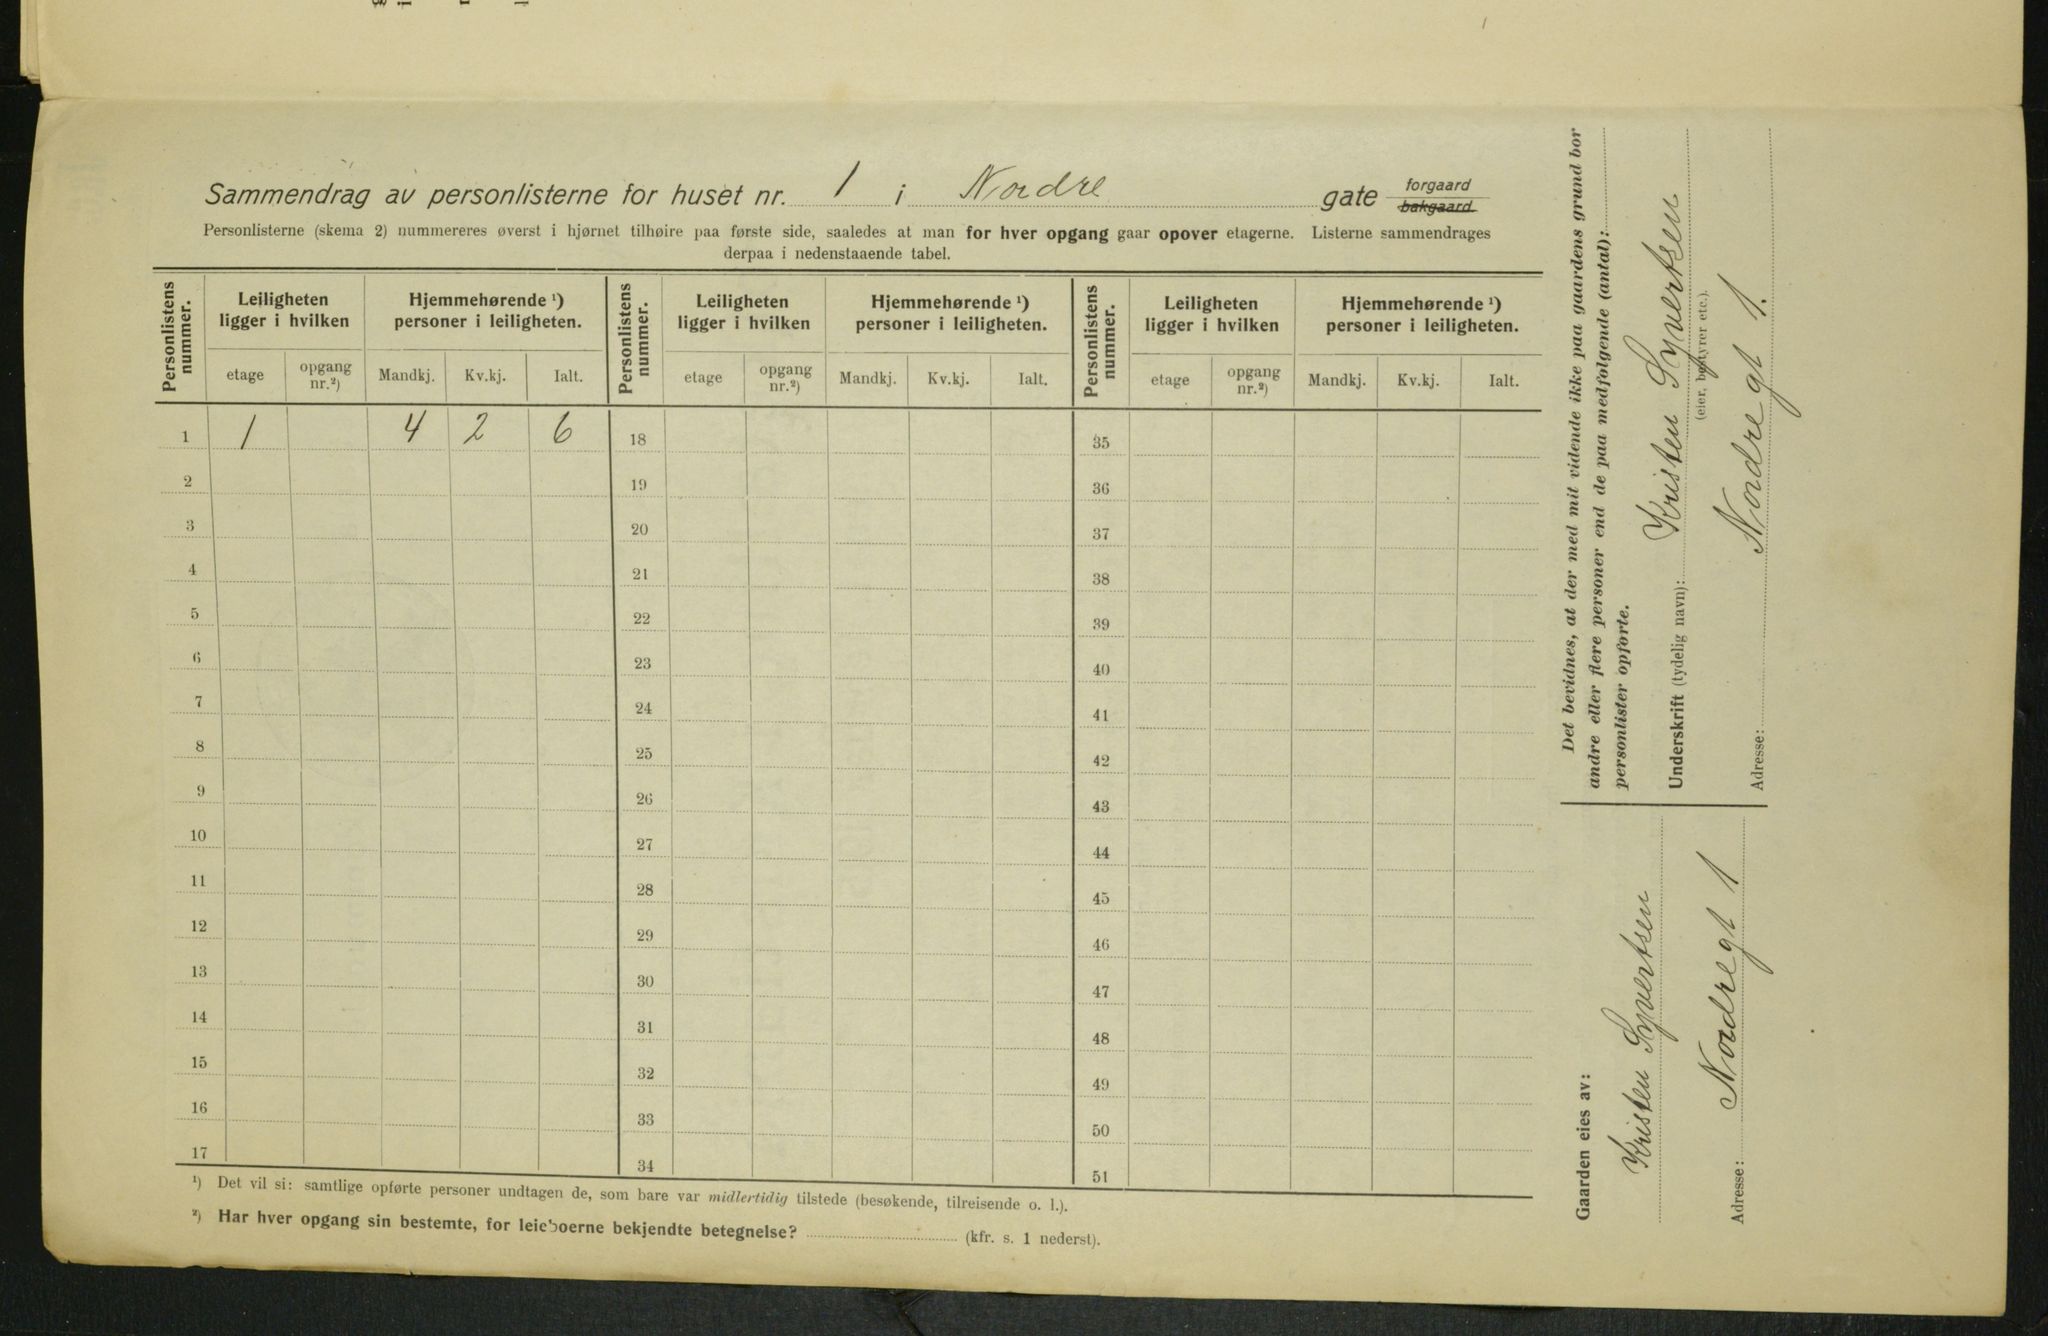 Sammendrag av personlisterne for huset nr. 1 i Nordre gate forgaard bakgaard.
Personlisterne (skema 2) nummereres øverst i hjørnet tilhøire paa første side, saaledes at man for hver opgang gaar opover etagerne. Listerne sammendrages
derpaa i nedenstaaende tabel.
Personlistens nummer. Leiligheten ligger i hvilken Hjemmehørende ¹) personer i leiligheten. Personlistens nummer. Leiligheten ligger i hvilken Hjemmehørende ¹) personer i leiligheten. Personlistens nummer. Leiligheten ligger i hvilken Hjemmehørende ¹) personer i leiligheten.
etage opgang nr.²) Mandkj. Kv.kj. Ialt. etage opgang nr.²) Mandkj. Kv.kj. Ialt. etage opgang nr.²) Mandkj. Kv.kj. Ialt.
1 1 4 2 6 18 35
2 19 36
3 20 37
4 21 38
5 22 39
6 23 40
7 24 41
8 25 42
9 26 43
10 27 44
11 28 45
12 29 46
13 30 47
14 31 48
15 32 49
16 33 50
17 34 51
¹) Det vil si: samtlige opførte personer undtagen de, som bare var midlertidig tilstede (besøkende, tilreisende o. l.).
²) Har hver opgang sin bestemte, for leieboerne bekjendte betegnelse? (kfr. s. 1 nederst).
Det bevidnes, at der med mit vidende ikke paa gaardens grund bor
andre eller flere personer end de paa medfolgende (antal):
personlister opforte.
Underskrift (tydelig navn): Kristen Syvertsen
(eier, bestyrer etc.).
Adresse: Nordregt 1.
Gaarden eies av:
Kristen Syvertsen
Adresse: Nordregt 1